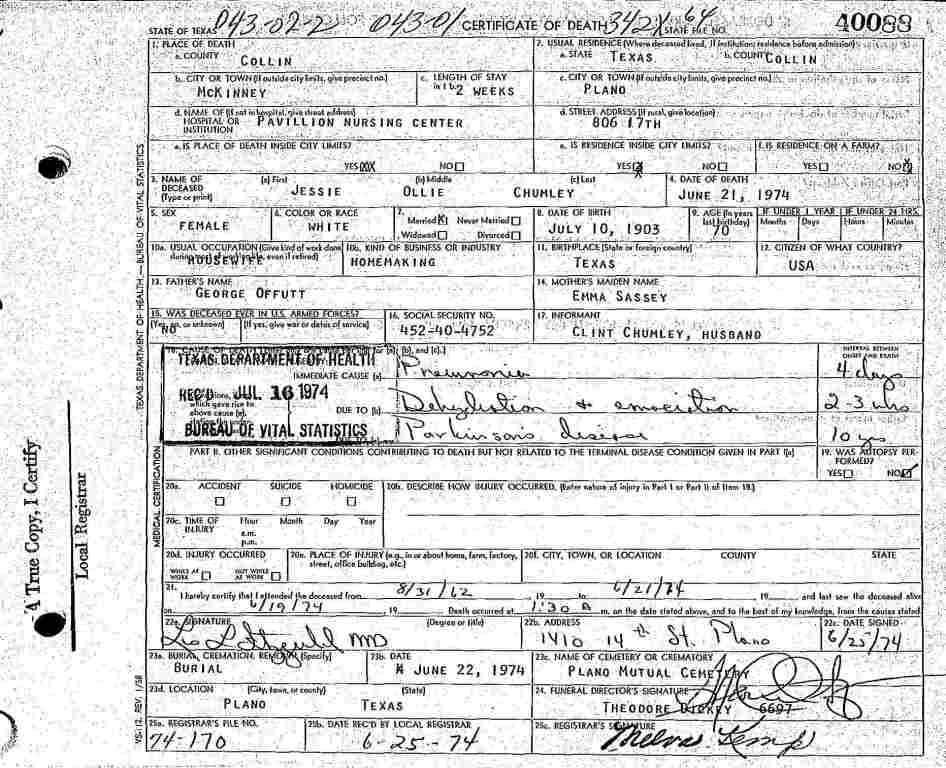 043-02-2 043-01 CERTIFICATE OF DEATH 342X 64 40088
STATE OF TEXAS STATE FILE NO.
1. PLACE OF DEATH 2. USUAL RESIDENCE (Where deceased lived, If institution: residence before admission)
a. COUNTY COLLIN a. STATE TEXAS b. COUNTY COLLIN
b. CITY OR TOWN (If outside city limits, give precinct no.) c. LENGTH OF STAY in 1 b. c. CITY OR TOWN (If outside city limits, give precinct no.)
MCKINNEY 2 WEEKS PLANO
d. NAME OF (If not in hospital, give street address) d. STREET ADDRESS (If rural, give location)
HOSPITAL OR INSTITUTION PAVILLION NURSING CENTER 806 17TH
e. IS PLACE OF DEATH INSIDE CITY LIMITS? e. IS RESIDENCE INSIDE CITY LIMITS? f. IS RESIDENCE ON A FARM?
YES XXX NO YES X NO YES NO X
3. NAME OF DECEASED (Type or print) (a) First (b) Middle (c) Last 4. DATE OF DEATH
JESSIE OLLIE CHUMLEY JUNE 21, 1974
5. SEX 6. COLOR OR RACE 7. Married X Never Married 8. DATE OF BIRTH 9. AGE (In years last birthday) IF UNDER 1 YEAR IF UNDER 24 HRS.
Months Days Hours Minutes
FEMALE WHITE Widowed Divorced JULY 10, 1903 70
10a. USUAL OCCUPATION (Give kind of work done during most of working life, even if retired) 10b. KIND OF BUSINESS OR INDUSTRY 11. BIRTHPLACE (State or foreign country) 12. CITIZEN OF WHAT COUNTRY?
HOUSEWIFE HOMEMAKING TEXAS USA
13. FATHER'S NAME 14. MOTHER'S MAIDEN NAME
GEORGE OFFUTT EMMA SASSEY
15. WAS DECEASED EVER IN U.S. ARMED FORCES? 16. SOCIAL SECURITY NO. 17. INFORMANT
(Yes, no, or unknown) (If yes, give war or dates of service)
NO 452-40-4752 CLINT CHUMLEY, HUSBAND
18. CAUSE OF DEATH (b), and (c).] INTERVAL BETWEEN ONSET AND DEATH
TEXAS DEPARTMENT OF HEALTH
IMMEDIATE CAUSE (a) Pneumonia 4 days
REC'D JUL 16 1974
which gave rise to above cause (a), DUE TO (b) Dehydration & emaciation 2-3 wks
BUREAU OF VITAL STATISTICS
Parkinson's disease 10 yrs
PART II. OTHER SIGNIFICANT CONDITIONS CONTRIBUTING TO DEATH BUT NOT RELATED TO THE TERMINAL DISEASE CONDITION GIVEN IN PART I(a) 19. WAS AUTOPSY PERFORMED?
YES NO
20a. ACCIDENT SUICIDE HOMICIDE 20b. DESCRIBE HOW INJURY OCCURRED. (Enter nature of injury in Part I or Part II of Item 18.)
20c. TIME OF INJURY Hour Month Day Year
a.m.
p.m.
20d. INJURY OCCURRED 20e. PLACE OF INJURY (e.g., in or about home, farm, factory, street, office building, etc.) 20f. CITY, TOWN, OR LOCATION COUNTY STATE
WHILE AT WORK NOT WHILE AT WORK
21. I hereby certify that I attended the deceased from 8/31/62 19 to 6/21/74 19 and last saw the deceased alive
on 6/19/74 19 Death occurred at 1:30 A m. on the date stated above, and to the best of my knowledge, from the causes stated.
22a. SIGNATURE (Degree or title) 22b. ADDRESS 22c. DATE SIGNED
MD 1410 14th St. Plano 6/25/74
23a. BURIAL, CREMATION, REMOVAL (Specify) 23b. DATE 23c. NAME OF CEMETERY OR CREMATORY
BURIAL JUNE 22, 1974 PLANO MUTUAL CEMETERY
23d. LOCATION (City, town, or county) (State) 24. FUNERAL DIRECTOR'S SIGNATURE
PLANO TEXAS THEODORE DICKEY 6697
25a. REGISTRAR'S FILE NO. 25b. DATE REC'D BY LOCAL REGISTRAR 25c. REGISTRAR'S SIGNATURE
74-170 6-25-74 Melva Kemp
TEXAS DEPARTMENT OF HEALTH — BUREAU OF VITAL STATISTICS
MEDICAL CERTIFICATION
VS-112 REV. 1/58
A True Copy, I Certify
Local Registrar